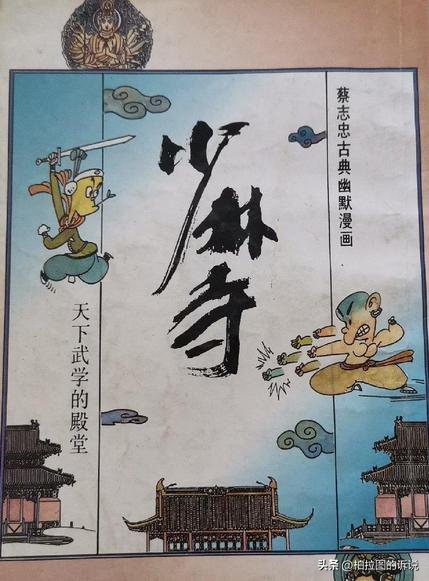 蔡志忠古典幽默漫画
少林寺
天下武学的殿堂
头条 @柏拉图的诉说